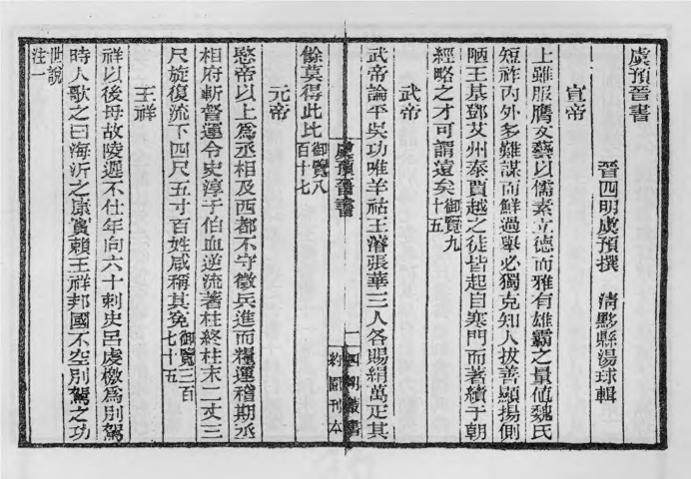 虞預晉書
晉四明虞預撰　清黟縣湯球輯
宣帝
上雖服膺文藝以儒素立德而雅有雄霸之量値魏氏
短祚內外多難謀而鮮過舉必獨克知人拔善顯揚側
陋王基鄧艾州泰賈越之徒皆起自寒門而著績于朝
經略之才可謂遠矣御覽九十五
武帝
武帝論平吳功唯羊祜王濬張華三人各賜絹萬疋其
虞預晉書
一
四明叢書
約園刊本
餘莫得此比御覽八百十七
元帝
愍帝以上爲丞相及西都不守徵兵進而糧運稽期丞
相府斬督運令史淳于伯血逆流著柱終柱末二丈三
尺旋復流下四尺五寸百姓咸稱其冤御覽三百七十五
王祥
祥以後母故陵遲不仕年向六十刺史呂虔檄爲別駕
時人歌之曰海沂之康寔賴王祥邦國不空別駕之功
世說注一